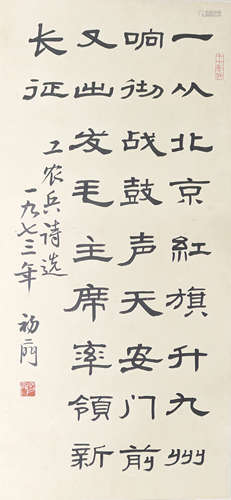 一从北京紅旗升九州
响彻战鼓声天安门前
又出发毛主席率領新
长征
工农兵诗选
一九七三年 初蕳